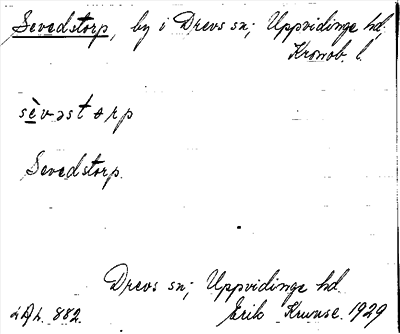 Sevedstorp, by i Drevs sn; Uppvidinge hd,
Kronob. l.
sèvəstɵrp
Sevedstorp.
Drevs sn; Uppvidinge hd.
882. Erik 1929